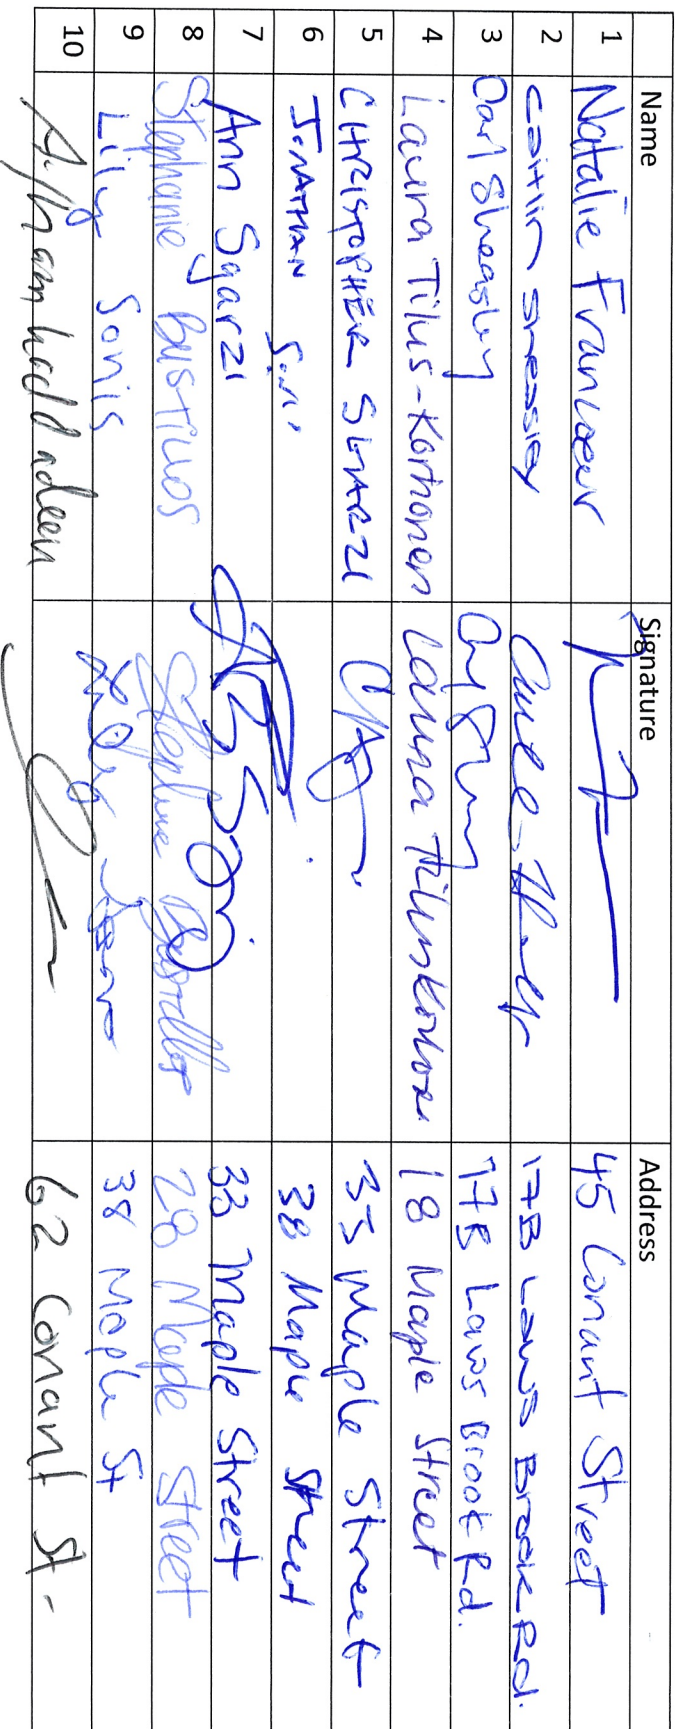 Name Signature Address
1 Natalie Francoeur 45 Conant Street
2 Caitlin Sheasley 17B Laws Brook Rd.
3 Carl Sheasley 17B Laws Brook Rd.
4 Laura Tilus-Korhonen Laura Tilus Korhonen 18 Maple Street
5 CHRISTOPHER SGARZI 33 Maple Street
6 JONATHAN 38 Maple Street
7 Ann Sgarzi 33 Maple Street
8 Stephanie Bustillos Stephanie Bustillos 28 Maple Street
9 Lily Sonis Lily 38 Maple St
10 62 Conant St.